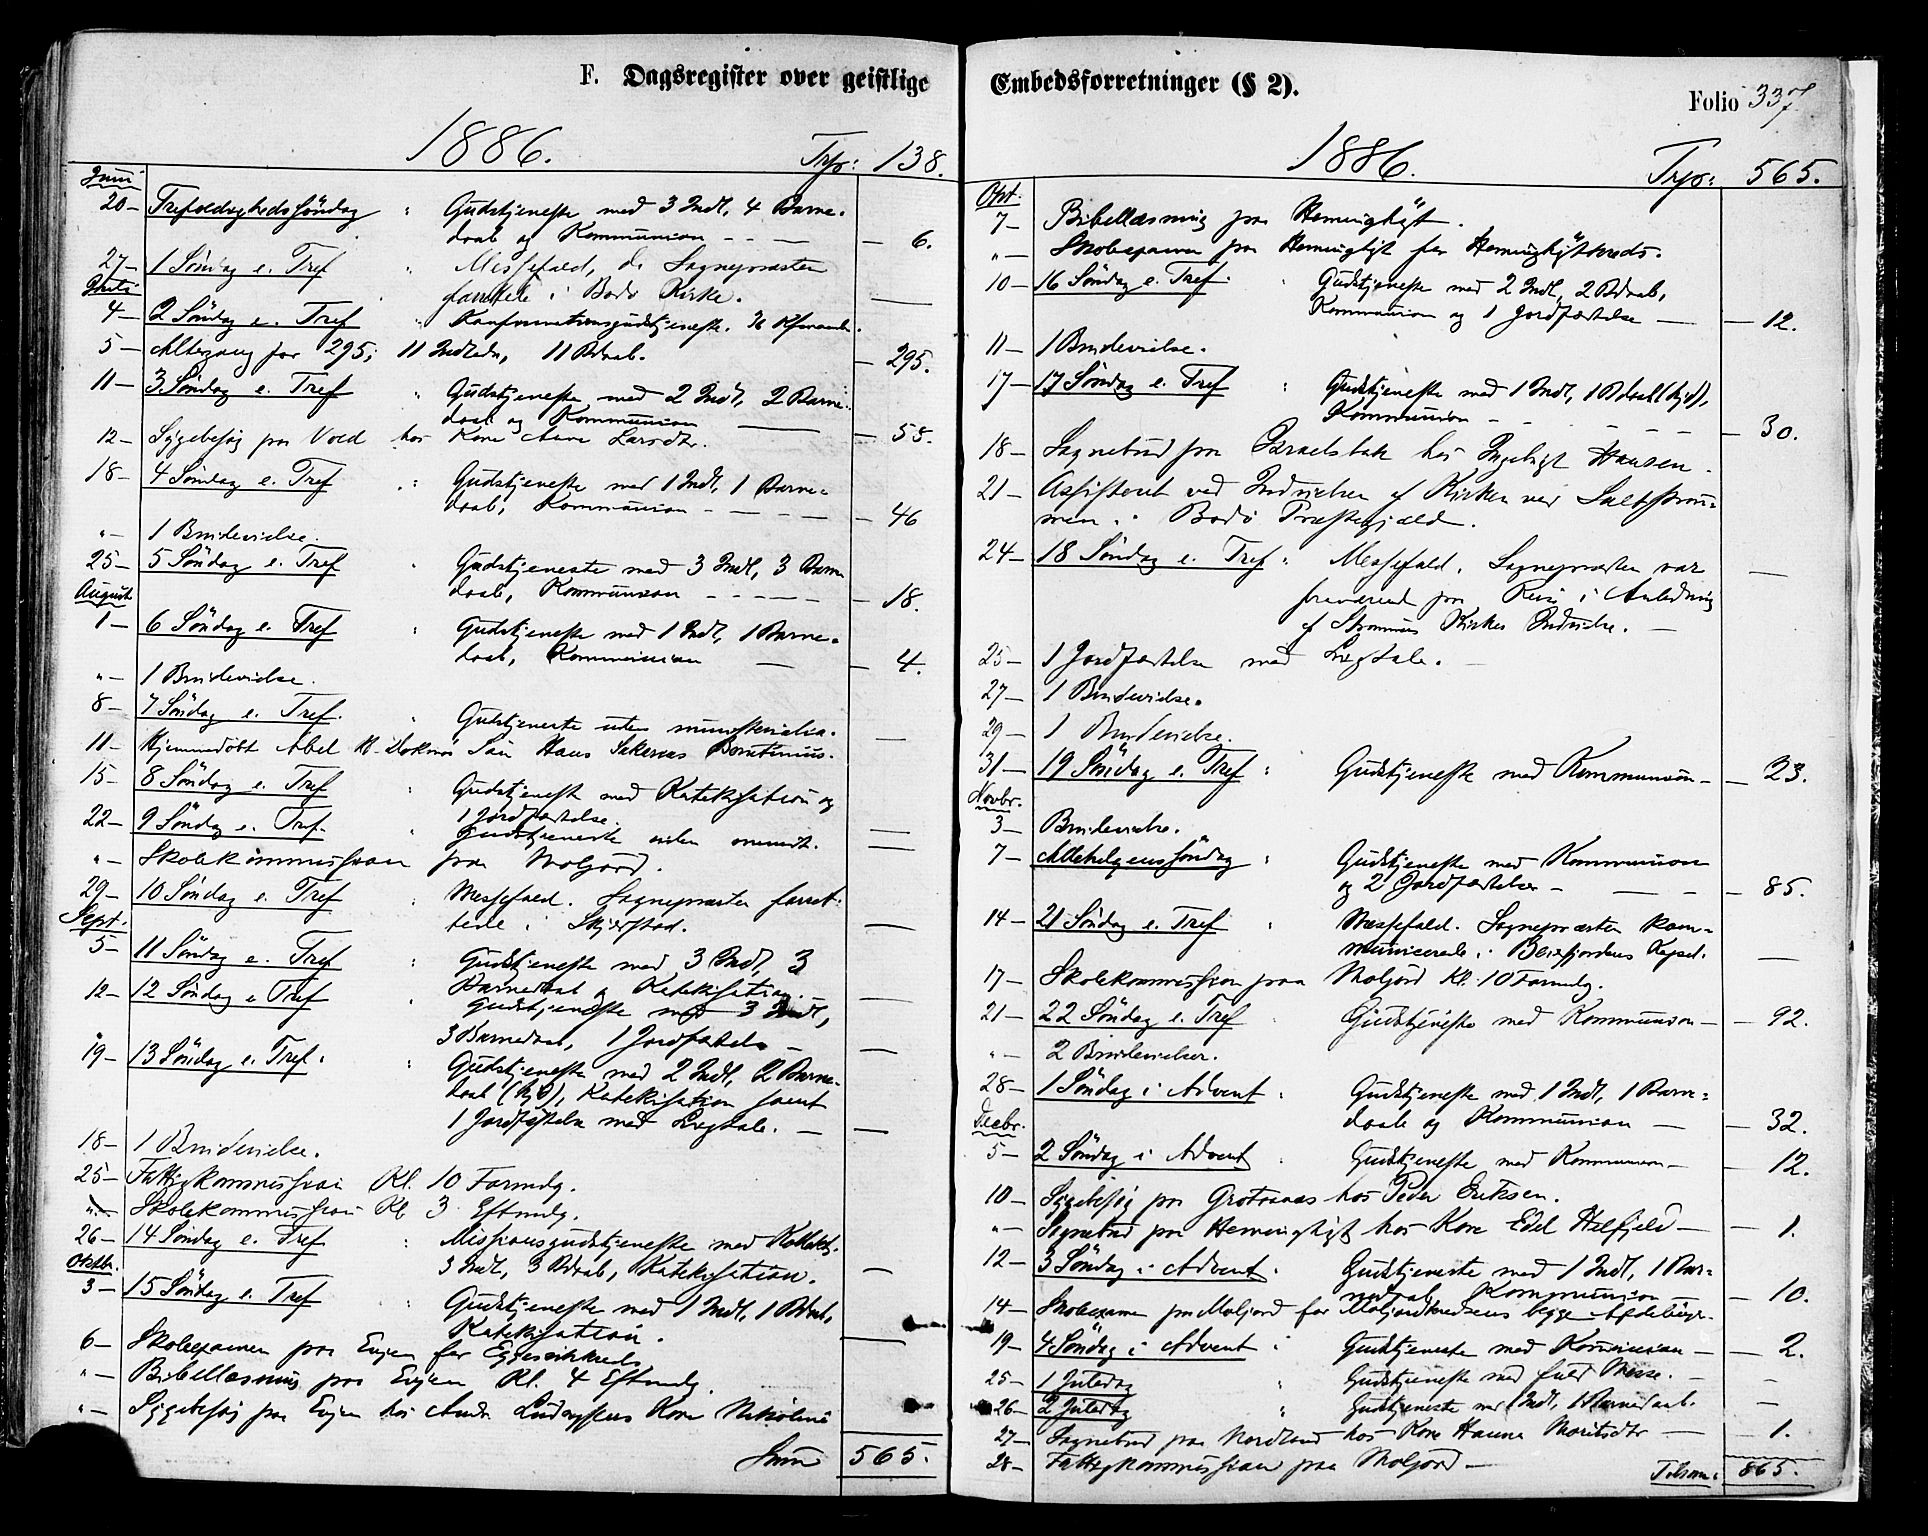 F. Dagsregister over geistlige
1886.
Trsp: 138.
Juni
20- Trefoldighedssöndag " Gudstjeneste med 3 Indl, 4 Barne-
daab og Kommunion - - - - 6.
27- 1 Söndag e. Tref " Messefald, da Sognepræsten
Juli
i Bodö Kirke. —
4- 2 Söndag e. Tref " Konfirmationsgudstjeneste. 36
5- Altergang for 295; 11 Indledn, 11 Bdaab. - 295.
11- 3 Söndag e. Tref " Gudstjeneste med 2 Indl, 2 Barne-
daab og Kommunion — - 58.
12- Sygebesög paa Vold hos Kone Larsdtr.
18- 4 Söndag e. Tref " Gudstjeneste med 1 Indl, 1 Barne-
daab, Kommunion - - - - 46
"- 1 Brudevielse.
25- 5 Söndag e. Tref " Gudstjeneste med 3 Indl, 3 Barne
daab, Kommunion - - - - - 18.
August
1- 6 Söndag e. Tref " Gudstjeneste med 1 Indl, 1 Barne-
daab, Kommunion — - 4.
"- 1 Brudevielse.
8- 7 Söndag e. Tref. " Gudstjeneste uden —
11- Hjemmedöbt Abel Sön Hans
15- 8 Söndag e. Tref " Gudstjeneste med Katekisation og
1 Jordfæstelse. —
22- 9 Söndag e. Tref. " Gudstjeneste uden —
"- Skolekommission paa Moljord.
29- 10 Söndag e. Tref " Messefald. Sognepræsten forret-
Sept.
tede i Skjerstad. —
5- 11 Söndag e. Tref " Gudstjeneste med 3 Indl, 3
Barnedaab og Katekisation. —
12- 12 Söndag e Tref " Gudstjeneste med 3 Indl,
3 Barnedaab, 1 Jordfæstelse — —
19- 13 Söndag e. Tref. " Gudstjeneste med 2 Indl, 2 Barne-
daab (hjd), Katekisation samt
1 Jordfæstelse med Ligtale. — —
18- 1 Brudevielse.
25- Fattigkommission Kl. 10 Formdg.
"- Skolekommission Kl 3 Eftmdg.
26- 14 Söndag e. Tref " Missionsgudstjeneste med Kollekt.
3 Indl, 3 Bdaab, Katekisation. —
Oktbr.
3- 15 Söndag e. Tref " Gudstjeneste med 1 Indl, 1 Bdaab,
Katekisation. —
6- Skoleexamen paa Evjen for
"- Bibellæsning paa Evjen Kl. 4 Eftmdg.
"- Sygebesög paa Evjen hos Kone
Sum 565.
Embedsforretninger (§ 2).
Folio 337.
1886.
Trsp: 565.
Okt.
7- Bibellæsning paa
"- Skoleexamen paa for
10- 16 Söndag e. Tref. " Gudstjeneste med 2 Indl, 2 Bdaab,
Kommunion og 1 Jordfæstelse — - 12.
11- 1 Brudevielse.
17- 17 Söndag e. Tref " Gudstjeneste med 1 Indl, 1 Bdaab (hjd),
Kommunion - - - - - 30.
18- Sognebud paa hos Ingebrigt Hansen.
21- Assisteret ved Indvielsen af Kirken ved Saltström-
men i Bodö Præstegjæld.
24- 18 Söndag e. Tref " Messefald. Sognepræsten var —
fraværende paa Reise i Anledning
af Strömmens Kirkes Indvielse. —
25- 1 Jordfæstelse med Ligtale. —
27- 1 Brudevielse.
29- 1 Brudevielse.
31- 19 Söndag e. Tref " Gudstjeneste med Kommunion - - 23.
Novbr.
3- Brudevielse.
7- Allehelgenssöndag " Gudstjeneste med Kommunion
og 2 Jordfæstelser - — - - 85.
14- 21 Söndag e. Tref " Messefald. Sognepræsten kom-
municerede i Beierfjordens Kapel. —
17- Skolekommission paa Moljord Kl. 10 Formdg.
21- 22 Söndag e. Tref " Gudstjeneste med Kommunion - - 92.
"- 2 Brudevielser.
28- 1 Söndag i Advent " Gudstjeneste med 1 Indl, 1 Barne-
Decbr.
daab og Kommunion — - 32.
5- 2 Söndag i Advent " Gudstjeneste med Kommunion - - 12.
10- Sygebesög paa hos Peder Eriksen.
"- Sognebud paa hos Kone Edel - - 1.
12- 3 Söndag i Advent. " Gudstjeneste med 1 Indl, 1 Bar-
nedaab, Kommunion — - 10.
14- Skoleexamen paa Moljord for Moljordkredsens begge Afdelinger.
19- 4 Söndag i Advent " Gudstjeneste med Kommunion - - 2.
25- 1 Juledag " Gudstjeneste med fuld Messe. - -
26- 2 Juledag " Gudstjeneste med 1 Indl, 1 Barnedaab. —
27- Sognebud paa Nordland hos Kone Hanna Moritsdtr — - 1.
28- Fattigkommission paa Moljord —
Tilsam: 865.